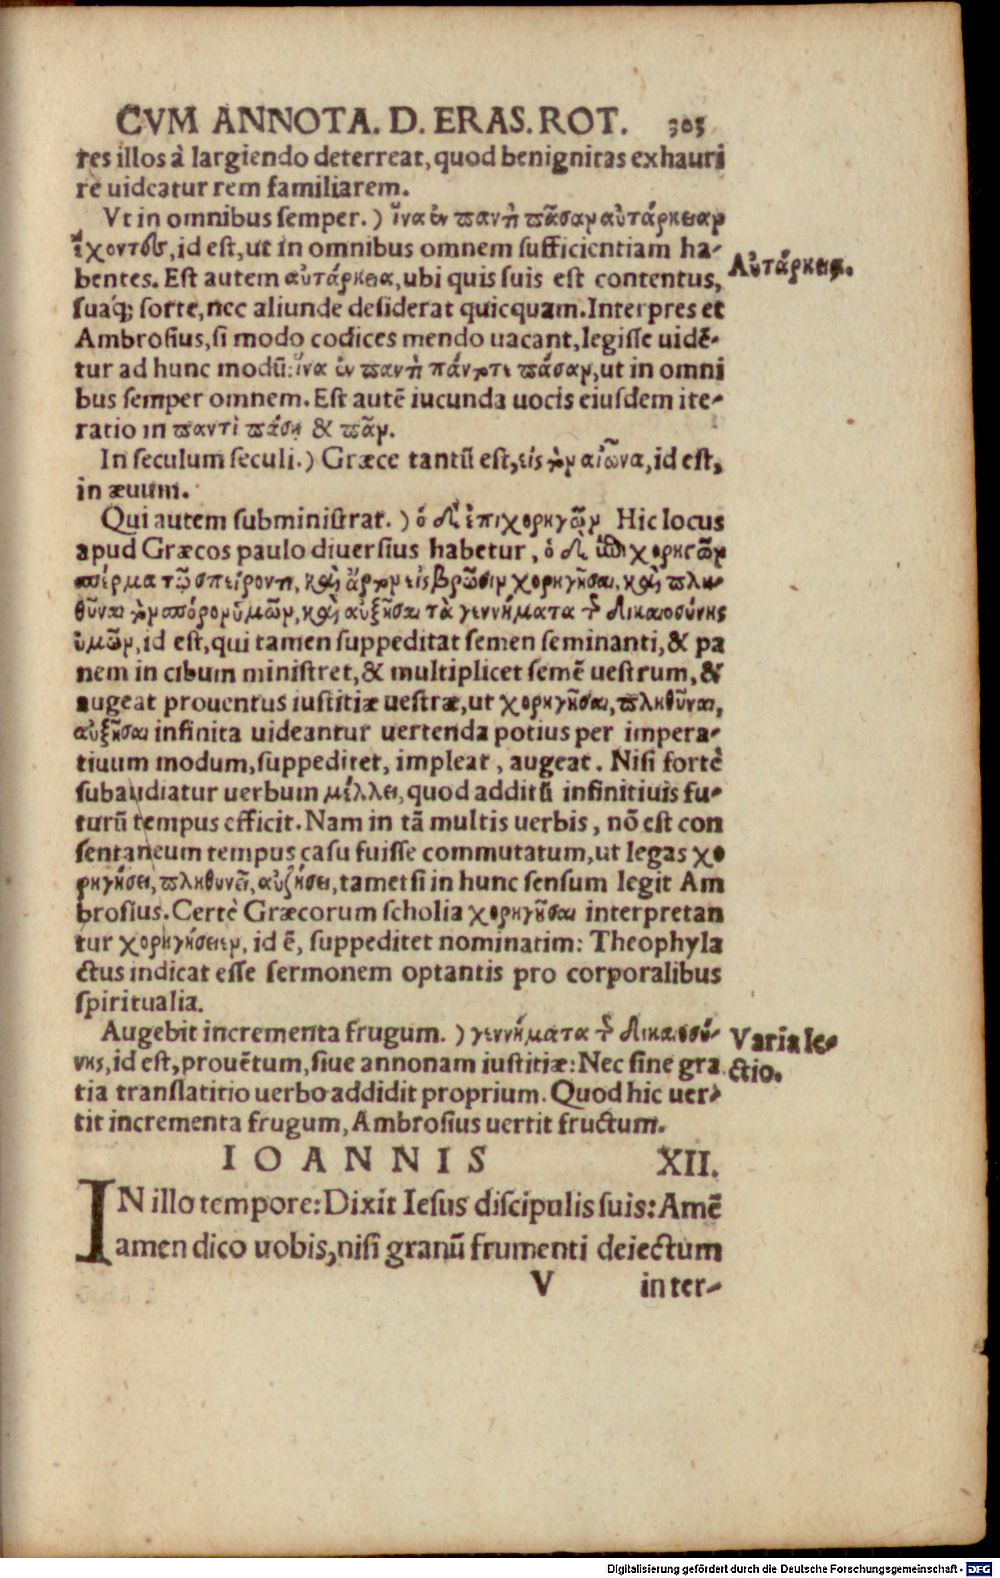 CVM ANNOTA. D. ERAS. ROT. 305
res illos à largiendo deterreat, quod benignitas exhauri
re uideatur rem familiarem.
Vt in omnibus semper.) ἵνα ἐν παντὶ πᾶσαν αὐτάρκειαν
ἔχοντες, id est, ut in omnibus omnem sufficientiam ha-
bentes. Est autem αὐτάρκεια, ubi quis suis est contentus,
Αὐτάρκεια.
suaq́; sorte, nec aliunde desiderat quicquam. Interpres et
Ambrosius, si modo codices mendo uacant, legisse uidē-
tur ad hunc modū: ἵνα ἐν παντὶ πάντοτε πᾶσαν, ut in omni
bus semper omnem. Est autē iucunda uocis eiusdem ite-
ratio in παντὶ πάσῃ & πᾶν.
In seculum seculi.) Græce tantū est, εἰς τὸν αἰῶνα, id est,
in æuum.
Qui autem subministrat.) ὁ δὲ ἐπιχορηγῶν Hic locus
apud Græcos paulo diuersius habetur, ὁ δὲ ἐπιχορηγῶν
σπέρμα τῷ σπείροντι, καὶ ἄρτον εἰς βρῶσιν χορηγῆσαι, καὶ πλη-
θῦναι τὸν σπόρον ὑμῶν, καὶ αὐξῆσαι τὰ γεννήματα τῆς δικαιοσύνης
ὑμῶν, id est, qui tamen suppeditat semen seminanti, & pa
nem in cibum ministret, & multiplicet semē uestrum, &
augeat prouentus iustitiæ uestræ, ut χορηγῆσαι, πληθῦναι,
αὐξῆσαι infinita uideantur uertenda potius per impera-
tiuum modum, suppeditet, impleat, augeat. Nisi fortè
subaudiatur uerbum μέλλει, quod additū infinitiuis fu-
turū tempus efficit. Nam in tā multis uerbis, nō est con
sentaneum tempus casu fuisse commutatum, ut legas χο
ρηγήσει, πληθυνεῖ, αὐξήσει, tametsi in hunc sensum legit Am
brosius. Certè Græcorum scholia χορηγῆσαι interpretan
tur χορηγήσειεν, id ē, suppeditet nominatim: Theophyla
ctus indicat esse sermonem optantis pro corporalibus
spiritualia.
Augebit incrementa frugum.) γεννήματα τῆς δικαιοσύ-
Varia le-
ctio.
νης, id est, prouētum, siue annonam iustitiæ: Nec sine gra
tia translatitio uerbo addidit proprium. Quod hic uer-
tit incrementa frugum, Ambrosius uertit fructum.
IOANNIS XII.
IN illo tempore: Dixit Iesus discipulis suis: Amē
amen dico uobis, nisi granū frumenti deiectum
V in ter-
Digitalisierung gefördert durch die Deutsche Forschungsgemeinschaft - DFG